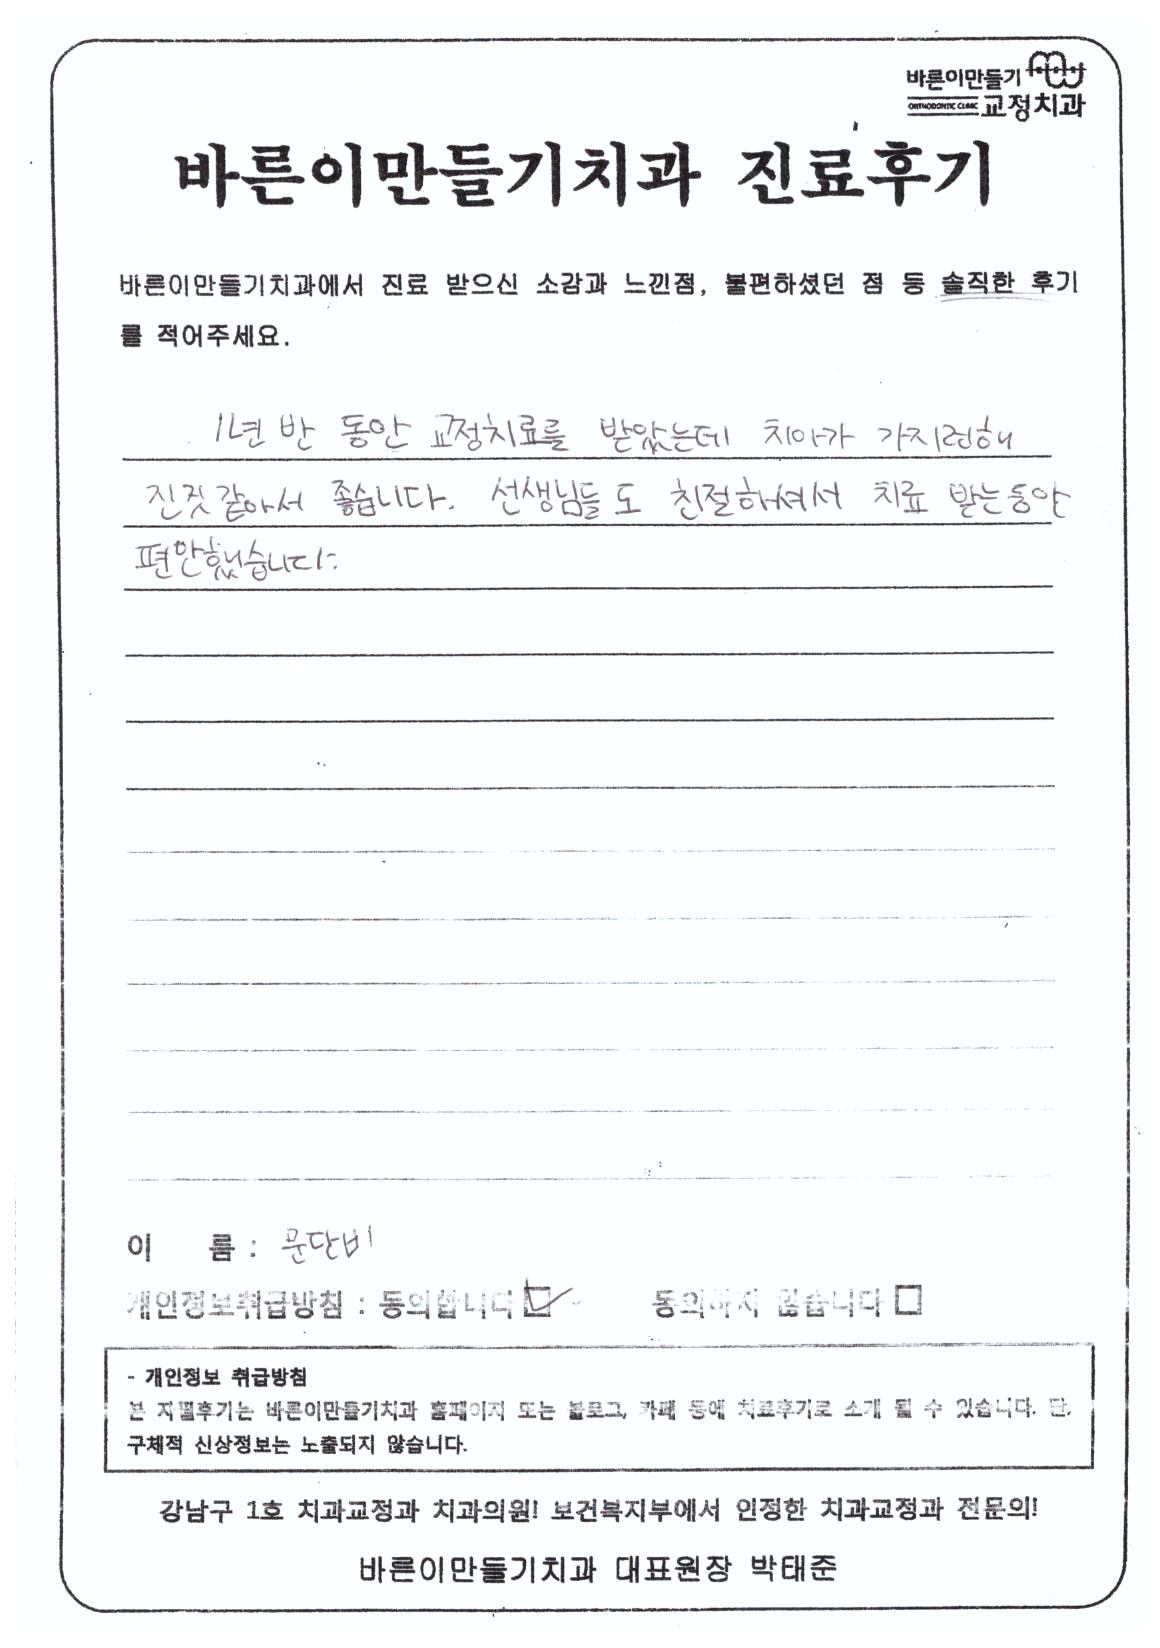 바른이만들기
ORTHODONTIC CLINIC 교정치과
바른이만들기치과 진료후기
바른이만들기치과에서 진료 받으신 소감과 느낀점, 불편하셨던 점 등 솔직한 후기
를 적어주세요.
1년 반 동안 교정치료를 받았는데 치아가 가지런해
진것 같아서 좋습니다. 선생님들도 친절하셔서 치료 받는동안
편안했습니다.
이 름 : 문단비
개인정보취급방침 : 동의합니다 ☑ 동의하지 않습니다 □
- 개인정보 취급방침
본 자필후기는 바른이만들기치과 홈페이지 또는 블로그, 카페 등에 치료후기로 소개 될 수 있습니다. 단,
구체적 신상정보는 노출되지 않습니다.
강남구 1호 치과교정과 치과의원! 보건복지부에서 인정한 치과교정과 전문의!
바른이만들기치과 대표원장 박태준